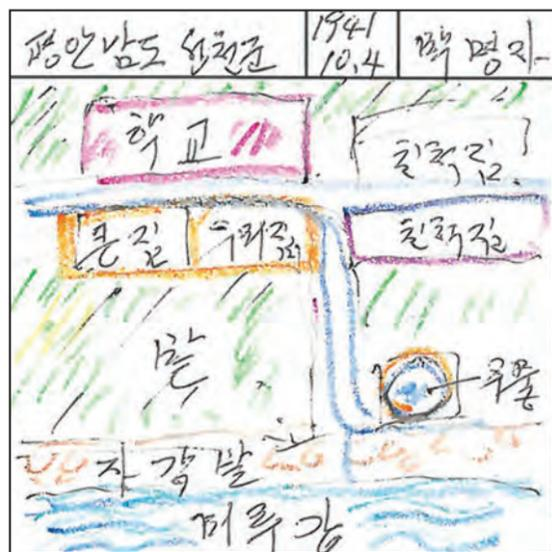 평안남도 선천군
1941
10.4
백명자
학교
친척집
큰집
우리집
친척집
밭
우물
자갈밭
미루강